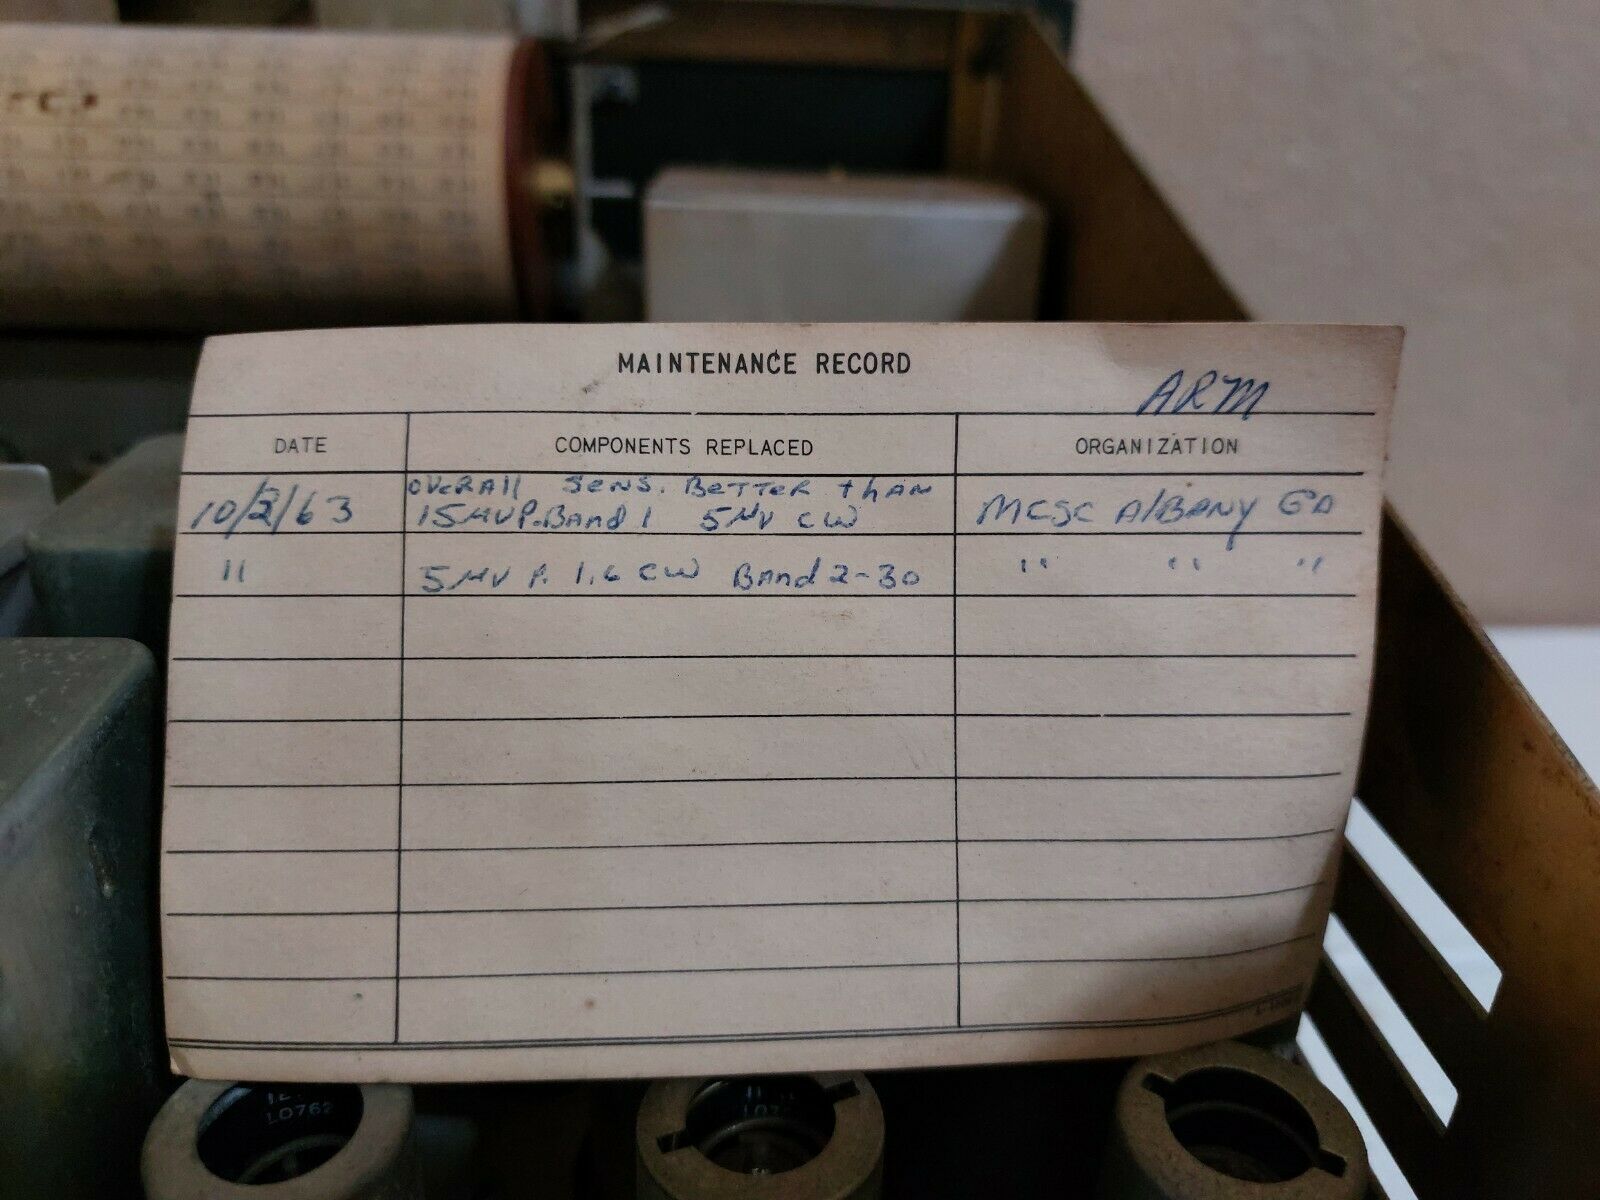 MAINTENANCE RECORD
ARM
DATE COMPONENTS REPLACED ORGANIZATION
10/2/63 OVERAll SENS. BETTER thAN MCSC AlBANY GA
15 MV P. BAnd 1 5 MV CW
11 5 MV P. 1.6 CW BAnd 2-30 " " "
L0762